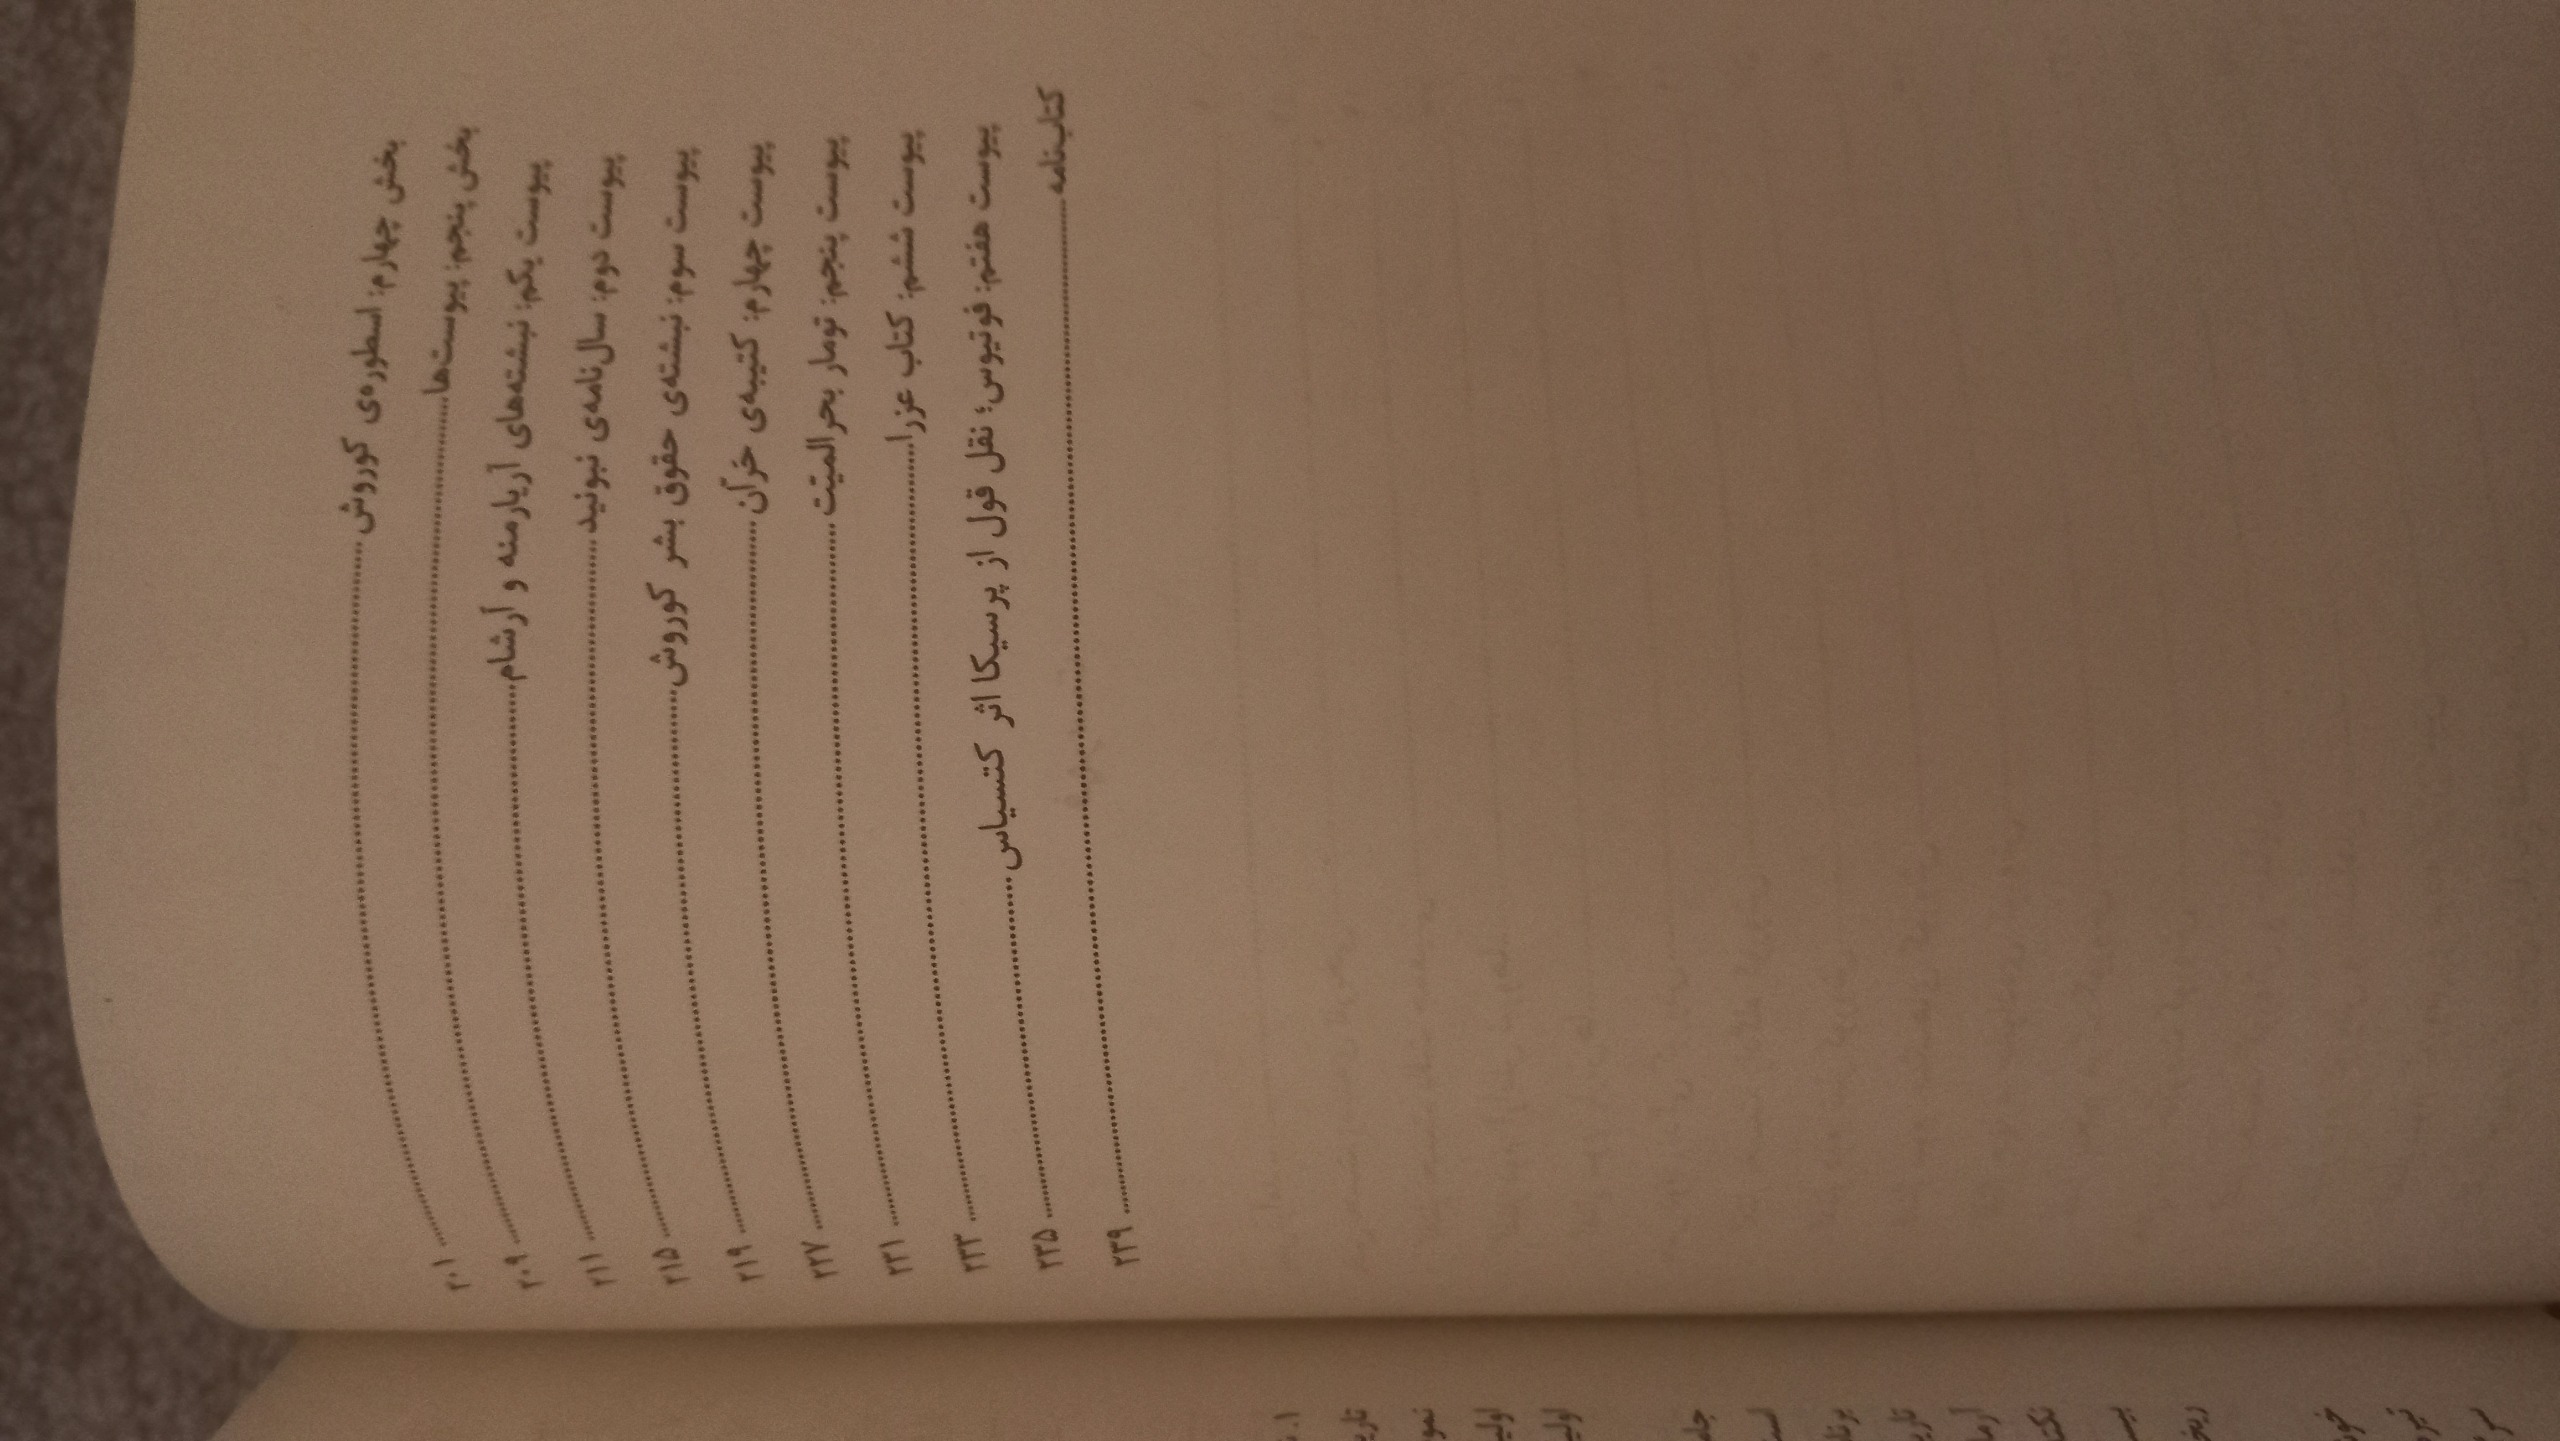 بخش چهارم: اسطوره‌ی کوروش ........ ۲۰۱
بخش پنجم: پیوست‌ها ........ ۲۰۹
پیوست یکم: نبشته‌های آریارمنه و آرشام ........ ۲۱۱
پیوست دوم: سال‌نامه‌ی نبونید ........ ۲۱۵
پیوست سوم: نبشته‌ی حقوق بشر کوروش ........ ۲۱۹
پیوست چهارم: کتیبه‌ی حَرّان ........ ۲۲۷
پیوست پنجم: تومار بحرالمیّت ........ ۲۳۱
پیوست ششم: کتاب عزرا ........ ۲۳۳
پیوست هفتم: فوتیوس؛ نقل قول از پرسیکا اثر کتسیاس ........ ۲۳۵
کتاب‌نامه ........ ۲۳۹